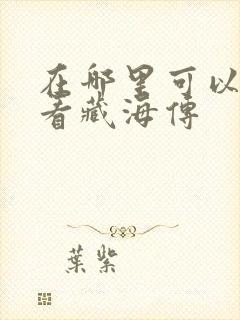 在哪里可以
看藏海傳
葉紫